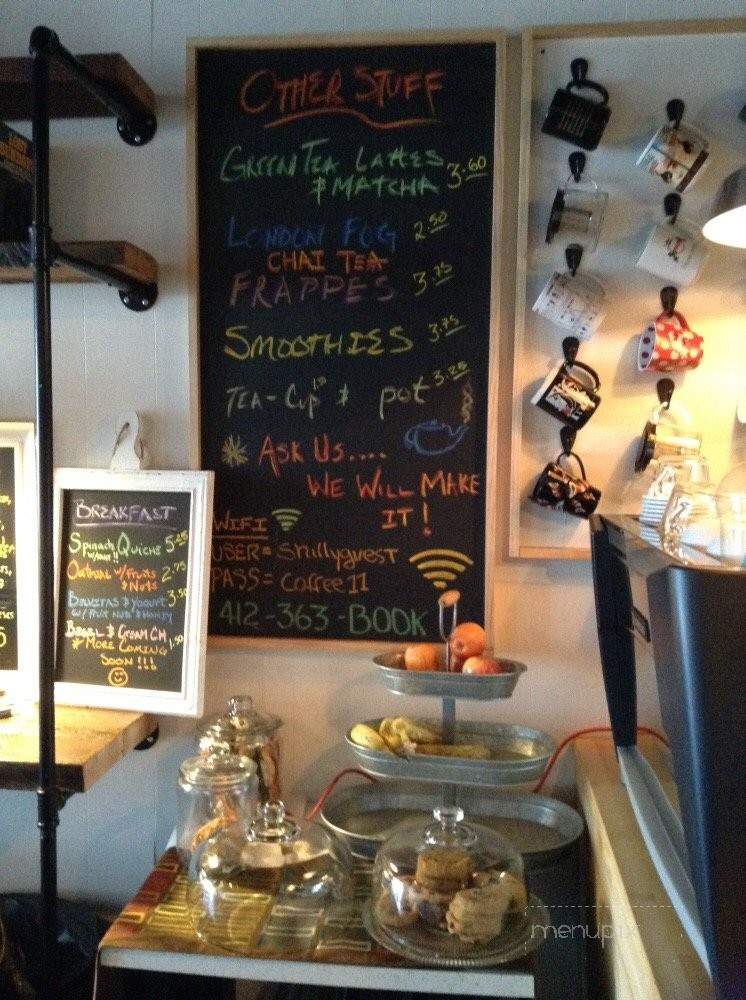 OTHER STUFF
GREEN TEA LATTES
& MATCHA 3.60
LONDON FOG 2.50
CHAI TEA
FRAPPES 3.75
SMOOTHIES 3.75
TEA - CUP & POT 3.25
ASK US....
WE WILL MAKE
IT!
WIFI
USER = Shillyguest
PASS = Coffee11
412-363-BOOK
BREAKFAST
Spinach Quiche 5.25
Oatmeal w/ Fruits
& Nuts 2.75
& Yogurt 3.50
W/ FRUIT NUTS & HONEY
BAGEL & CREAM CH 1.50
* MORE COMING
SOON!!!
menupix